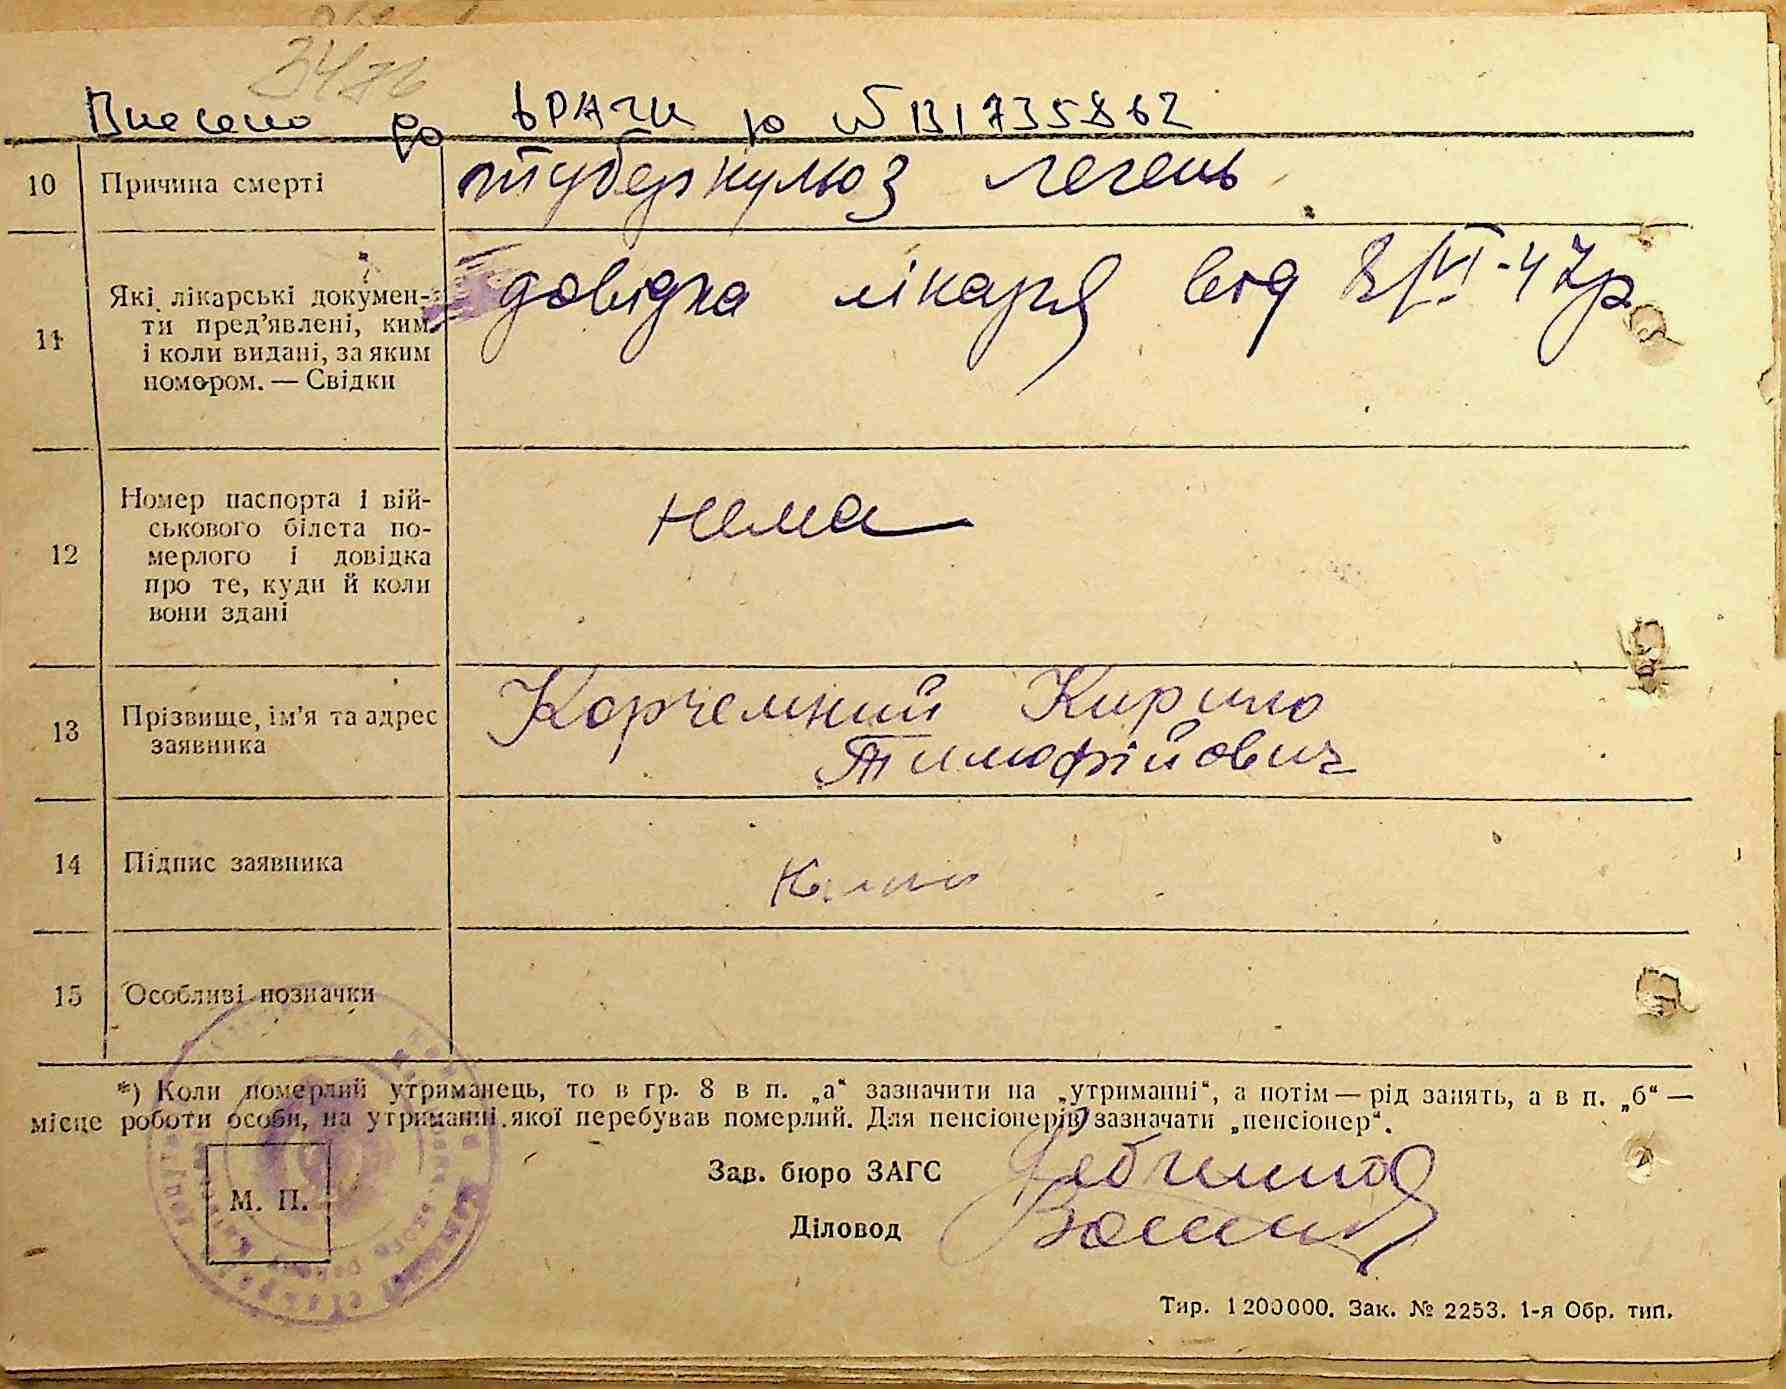 Внесено до ДРАЦГ
10 Причина смерті туберкульоз легень
11 Які лікарські докумен-
ти пред’явлені, ким
і коли видані, за яким
номером. — Свідки
довідка лікаря від 8/VI-47р
12 Номер паспорта і вій-
ськового білета по-
мерлого і довідка
про те, куди й коли
вони здані
нема
13 Прізвище, ім’я та адрес
заявника
Корчемний Кирило
Тимофійович
14 Підпис заявника
15 Особливі позначки
*) Коли померлий утриманець, то в гр. 8 в п. „а“ зазначити на „утриманні“, а потім — рід занять, а в п. „б“ —
місце роботи особи, на утриманні якої перебував померлий. Для пенсіонерів зазначати „пенсіонер“.
Зав. бюро ЗАГС
М. П.
Діловод
Тир. 1200000. Зак. № 2253. 1-я Обр. тип.